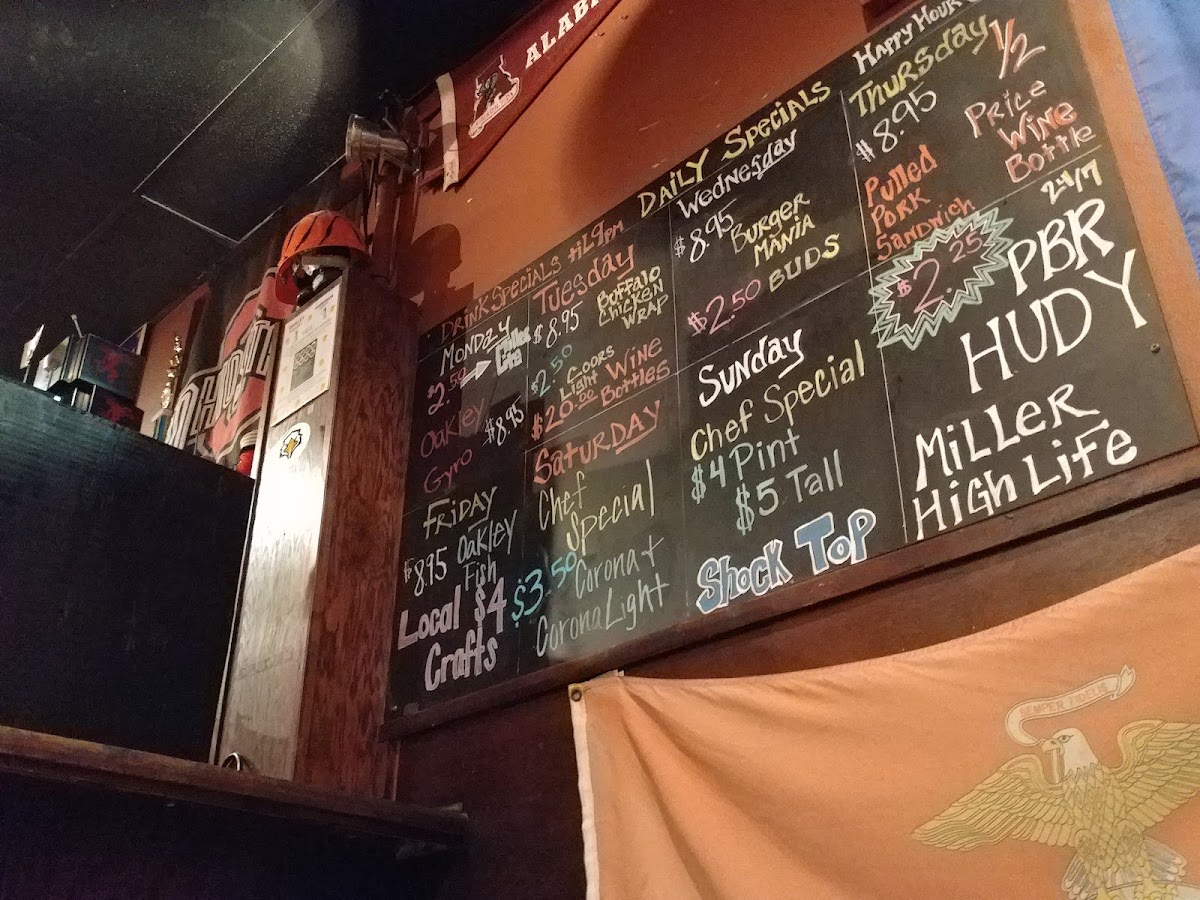 ALAB
DRINK SPECIALS til 9PM
DAILY SPECIALS
HAPPY HOUR
MONDAY
$2.50
Miller Lite
Oakley
Gyro
$8.95
Tuesday
$8.95
Buffalo
Chicken
WRAP
$2.50
Coors
Light
$20.00
WINE
Bottles
Wednesday
$8.95
BURGER
MANIA
$2.50 BUDS
Thursday
$8.95
Pulled
PORK
SANDWICH
1/2
PRICE
WINE
Bottle
FRIDAY
$8.95 Oakley
Fish
Local $4
Crafts
SATURDAY
Chef
Special
$3.50
Corona +
Corona Light
SUNDAY
Chef Special
$4 Pint
$5 Tall
Shock Top
24/7
$2.25
PBR
HUDY
MILLER
HIGH LIFE
SEMPER FIDELIS